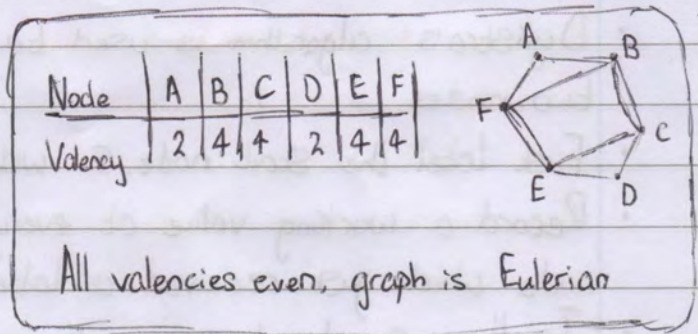 Node | A | B | C | D | E | F |
Valency | 2 | 4 | 4 | 2 | 4 | 4 |
A
B
F
C
E
D
All valencies even, graph is Eulerian